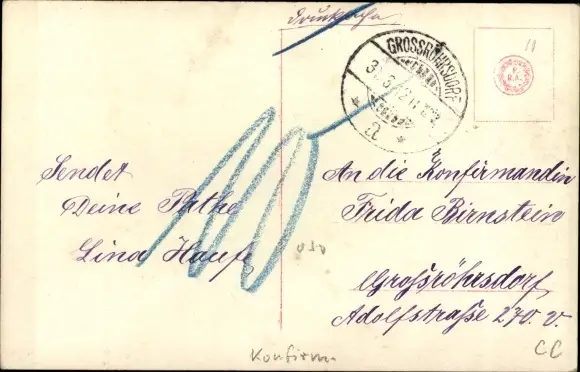 Drucksache
GROSSRÖHRSDORF
Sendet
Deine Pathe
Lina Haufe
An die Konfirmandin
Frida Birnstein
Großröhrsdorf
Adolfstraße 270. v.
Konfirm.
CC